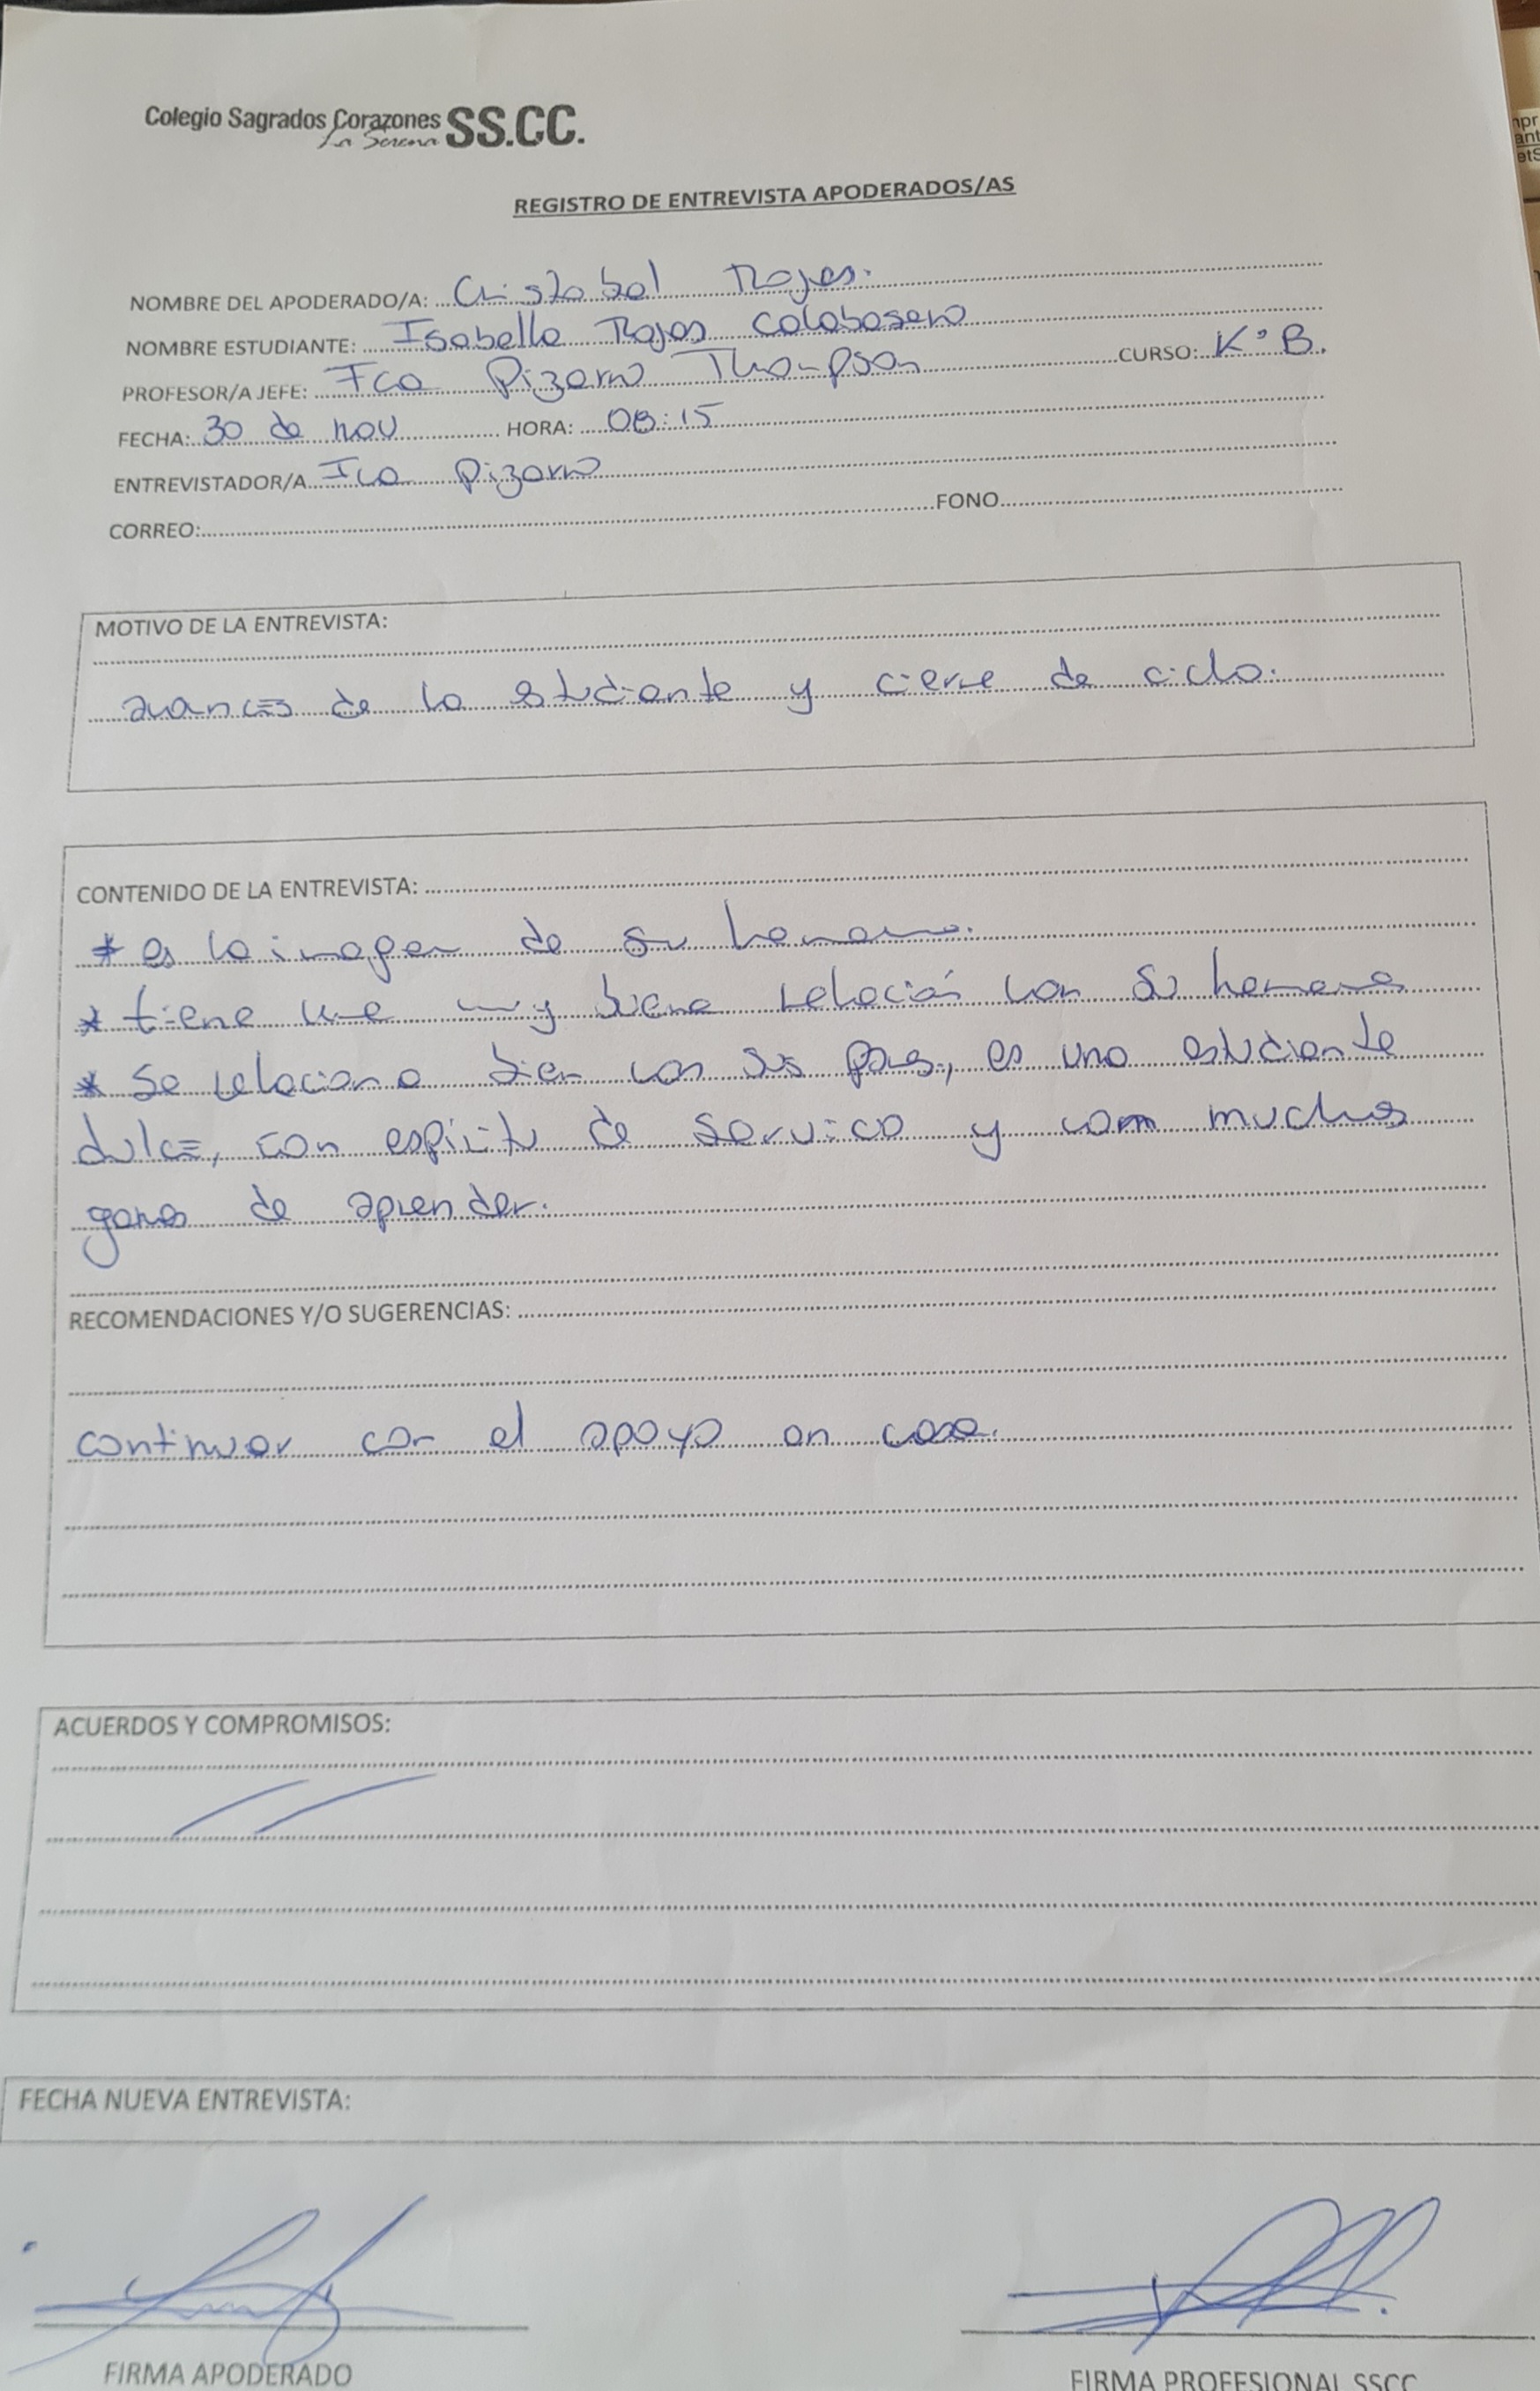 Colegio Sagrados Corazones SS.CC.
La Serena
REGISTRO DE ENTREVISTA APODERADOS/AS
NOMBRE DEL APODERADO/A: Cristobal Rojas.
NOMBRE ESTUDIANTE: Isabella Rojas
PROFESOR/A JEFE: Fca Pizarro Thompson CURSO: K°B.
FECHA: 30 de nov HORA: 08:15
ENTREVISTADOR/A Fca Pizarro
CORREO: FONO
MOTIVO DE LA ENTREVISTA:
avances de la estudiante y cierre de ciclo.
CONTENIDO DE LA ENTREVISTA:
* es la imagen de su
* tiene una muy buena relación con su hermana
* Se relaciona bien con sus pares, es una estudiante
dulce, con espiritu de servicio y com muchas
ganas de aprender.
RECOMENDACIONES Y/O SUGERENCIAS:
continuar con el apoyo en casa.
ACUERDOS Y COMPROMISOS:
FECHA NUEVA ENTREVISTA:
FIRMA APODERADO
FIRMA PROFESIONAL SSCC